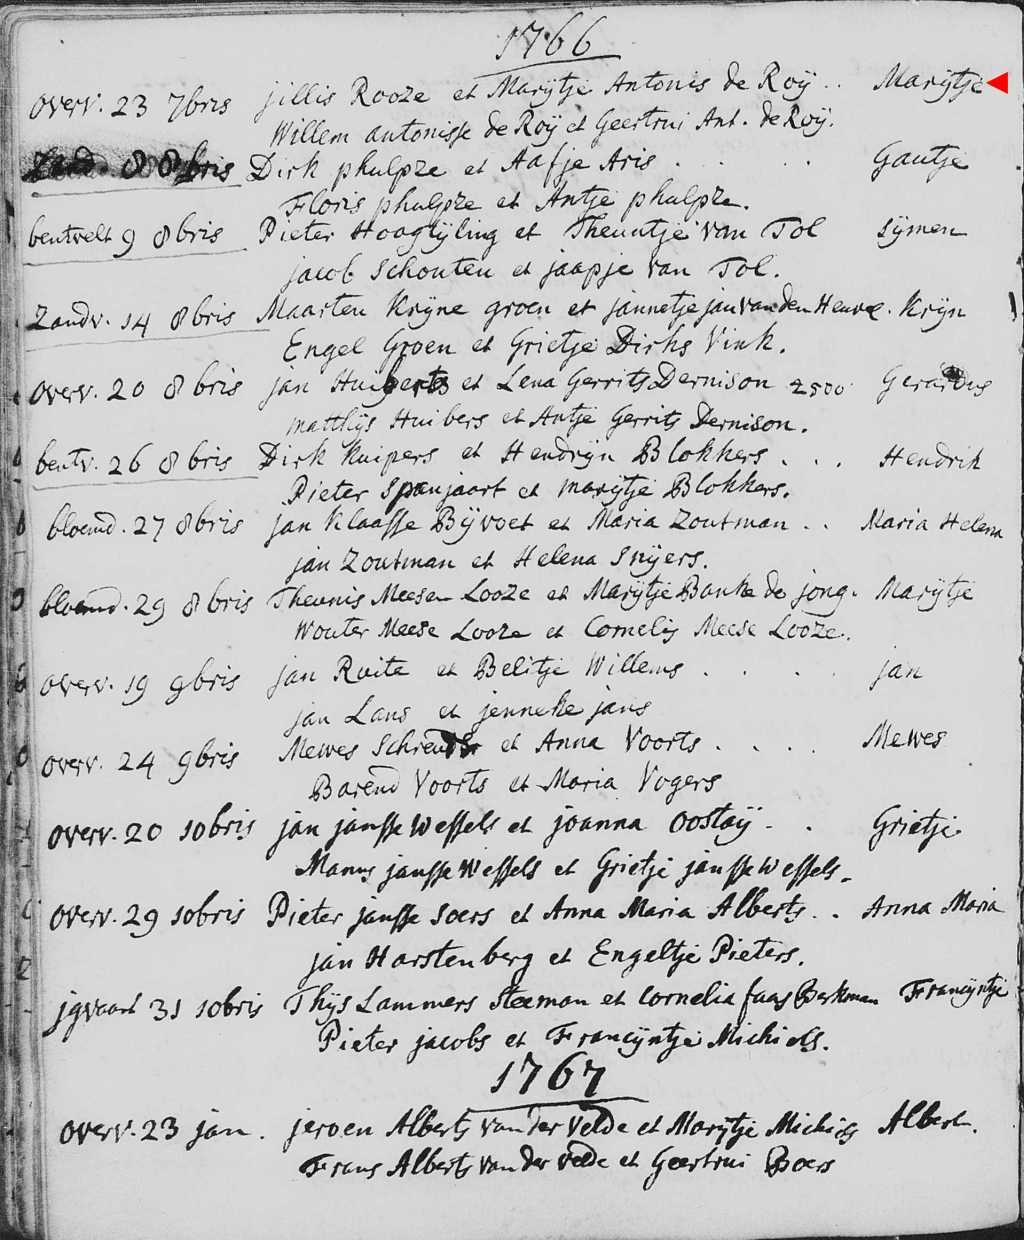 1766
overv. 23 7bris jillis Rooze et Marijtje Antonis de Roÿ .. Marijtje
Willem antonisse de Roÿ et Geertrui Ant. de Roÿ.
Zand. 8 8bris Dirk phulpze et Aafje Aris . . . . Gautje
Floris phulpze et Antje phulpze.
bentvelt 9 8bris Pieter Hoogtÿling et Theuntje van Tol Sÿmen
jacob Schouten et jaapje van Tol.
Zandv. 14 8bris Maarten Krÿne groen et jannetje jan van den Heuvel. Krÿn
Engel Groen et Grietje Dirks Vink.
overv. 20 8bris jan Huiberts et Lena Gerrits Dernison 2500 Gerardus
matthÿs Huibers et Antje Gerrits Dernison.
bentv. 26 8bris Dirk Kuipers et Hendrijn Blokkers . . . Hendrik
Pieter Spanjaart et marijtje Blokkers.
bloemd. 27 8bris jan Klaasse Bÿvoet et Maria Zoutman .. Maria Helena
jan Zoutman et Helena Snÿers.
bloemd. 29 8bris Theunis Meesen Looze et Marÿtje Banke de jong. Marÿtje
Wouter Meese Looze et Cornelis Meese Looze.
overv. 19 9bris jan Ruite et Belitje Willems . . . . jan
jan Lans et jenneke jans
overv. 24 9bris Mewes Schreuder et Anna Voorts . . . . Mewes
Barend Voorts et Maria Vogers
overv. 20 10bris jan jansse Wessels et joanna Oostaÿ . . Grietje
Manus jansse Wessels et Grietje jansse Wessels.
overv. 29 10bris Pieter jansse Soers et Anna Maria Alberts .. Anna Maria
jan Harstenberg et Engeltje Pieters.
jgvaart 31 10bris Thÿs Lammers Steeman et Cornelia faas Berkman Francÿntje
Pieter jacobs et Francÿntje Michiels.
1767
overv. 23 jan. jeroen Alberts van der Velde et Marijtje Michiels Albert.
Frans Alberts van der velde et Geertrui Boers